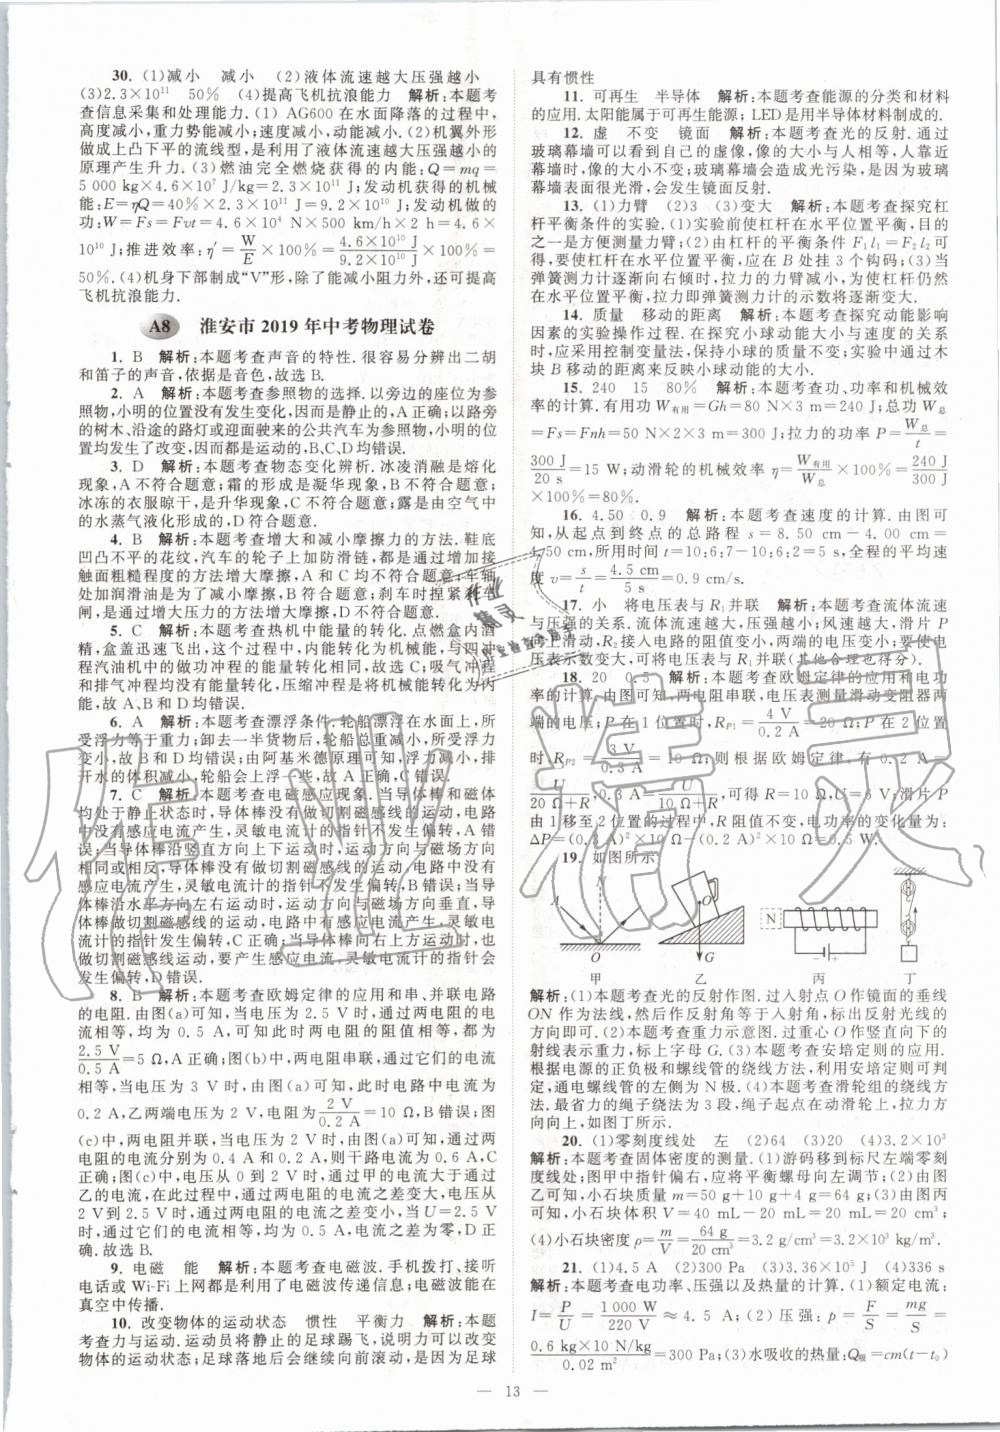 30. (1)减小 减小 (2)液体流速越大压强越小
(3)2.3×10¹¹ 50% (4)提高飞机抗浪能力 解析:本题考
查信息采集和处理能力. (1) AG600 在水面降落的过程中,
高度减小,重力势能减小;速度减小,动能减小. (2)机翼外形
做成上凸下平的流线型,是利用了液体流速越大压强越小的
原理产生升力. (3)燃油完全燃烧获得的内能:Q=mq=
5 000 kg×4.6×10⁷ J/kg=2.3×10¹¹ J;发动机获得的机械
能:E=ηQ=40%×2.3×10¹¹ J=9.2×10¹⁰ J;发动机做的
功:W=Fs=Fvt=4.6×10⁴ N×500 km/h×2 h=4.6×
10¹⁰ J;推进效率:η′=W/E×100%=4.6×10¹⁰ J/9.2×10¹⁰ J×100%=
50%. (4)机身下部制成“V”形,除了能减小阻力外,还可提高
飞机抗浪能力.
A8 淮安市 2019 年中考物理试卷
1. B 解析:本题考查声音的特性. 很容易分辨出二胡
和笛子的声音,依据是音色,故选 B.
2. A 解析:本题考查参照物的选择. 以旁边的座位为参
照物,小明的位置没有发生变化,因而是静止的,A 正确;以路旁
的树木、沿途的路灯或迎面驶来的公共汽车为参照物,小明的位
置均发生了改变,因而都是运动的,B、C、D 均错误.
3. D 解析:本题考查物态变化辨析. 冰凌消融是熔化
现象,A 不符合题意;霜的形成是凝华现象,B 不符合题意;
冰冻的衣服晾干,是升华现象,C 不符合题意;露是由空气中
的水蒸气液化形成的,D 符合题意.
4. B 解析:本题考查增大和减小摩擦力的方法. 鞋底
凹凸不平的花纹,汽车的轮子上加防滑链,都是通过增加接
触面粗糙程度的方法增大摩擦,A、C 均不符合题意;车轴
处加润滑油是为了减小摩擦,B 符合题意;刹车时捏紧车
闸,是通过增大压力的方法增大摩擦,D 不符合题意.
5. C 解析:本题考查热机中能量的转化. 点燃盒内酒
精,盒盖迅速飞出,这个过程中,内能转化为机械能,与四冲
程汽油机中的做功冲程的能量转化相同,故选 C;吸气冲程
和排气冲程均没有能量转化,压缩冲程是将机械能转化为内
能,故 A、B 和 D 均错误.
6. A 解析:本题考查漂浮条件. 轮船漂浮在水面上,所
受浮力等于重力;卸去一半货物后,轮船总重减小,所受浮力
变小,故 B 和 D 均错误;由阿基米德原理可知,浮力减小,排
开水的体积减小,轮船会上浮一些,故 A 正确,C 错误.
7. C 解析:本题考查电磁感应现象. 当导体棒和磁体
均处于静止状态时,导体棒没有做切割磁感线的运动,电路
中没有感应电流产生,灵敏电流计的指针不发生偏转,A 错
误;当导体棒沿竖直方向上下运动时,运动方向与磁场方向
相同或相反,导体棒没有做切割磁感线的运动,电路中没有
感应电流产生,灵敏电流计的指针不发生偏转,B 错误;当导
体棒沿水平方向左右运动时,运动方向与磁场方向垂直,导
体棒做切割磁感线的运动,电路中有感应电流产生,灵敏电
流计的指针发生偏转,C 正确;当导体棒向右上方运动时,也
做切割磁感线运动,要产生感应电流,灵敏电流计的指针会
发生偏转,D 错误.
8. B 解析:本题考查欧姆定律的应用和串、并联电路
的电阻. 由图(a)可知,当两电阻的电压为 2.5 V 时,电流
相等,均为 0.5 A,可知此时两电阻的阻值相等,都为
2.5 V/0.5 A=5 Ω,A 正确;图(b)中,两电阻串联,通过它们的电流
相等,当电压为 3 V 时,由图(a)可知,此时电路中电流为
0.2 A,乙两端电压为 2 V,电阻为2 V/0.2 A=10 Ω,B 错误;图
(c)中,两电阻并联,当电压为 2 V 时,由图(a)可知,通过两
电阻的电流分别为 0.4 A 和 0.2 A,则干路电流为 0.6 A,C
正确;当电压从 0 到 2 V 时,通过甲的电流大于通过
乙的电流,在此过程中,两电阻的电流之差变大,从
2 V 到 2.5 V 时,两电阻的电流之差减小,当 U=2.5 V
时,通过它们的电流相等,均为 0.5 A,电流之差为零,D 正
确. 故选 B.
9. 电磁 能 解析:本题考查电磁波. 手机拨打、接听
电话或 Wi-Fi 上网都是利用了电磁波传递信息;电磁波能在
真空中传播.
10. 改变物体的运动状态 惯性 平衡力 解析:本题
考查力与运动. 运动员将静止的足球踢飞,说明力可以改变
物体的运动状态;足球落地后会继续向前滚动,是因为足球
具有惯性
11. 可再生 半导体 解析:本题考查能源的分类和材料
的应用. 太阳能属于可再生能源;LED 是用半导体材料制成的.
12. 虚 不变 镜面 解析:本题考查光的反射. 通过
玻璃幕墙可以看到自己的虚像,像的大小与人相等,人靠近
幕墙时,像的大小不变;玻璃幕墙会造成光污染,是因为玻璃
幕墙表面很光滑,会发生镜面反射.
13. (1)力臂 (2)3 (3)变大 解析:本题考查探究杠
杆平衡条件的实验. (1)实验前使杠杆在水平位置平衡,目的
之一是方便测量力臂;(2)由杠杆的平衡条件 F₁l₁=F₂l₂可
得,要使杠杆在水平位置平衡,应在 B 处挂 3 个钩码;(3)当
弹簧测力计逐渐向右倾时,拉力的力臂减小,为使杠杆仍然
在水平位置平衡,即弹簧测力计的示数将逐渐变大.
14. 质量 移动的距离 解析:本题考查探究动能影响
因素的实验操作过程. 在探究小球动能大小与速度的关系
时,应采用控制变量法,保持小球的质量不变;实验中通过木
块 B 移动的距离来反映小球动能的大小.
15. 240 15 80% 解析:本题考查功、功率和机械效
率的计算. 有用功 W有用=Gh=80 N×3 m=240 J;总功 W总
=Fs=Fnh=50 N×2×3 m=300 J;拉力的功率 P=W总/t=
300 J/20 s=15 W;动滑轮的机械效率 η=W有用/W总×100%=240 J/300 J
×100%=80%.
16. 4.50 0.9 解析:本题考查速度的计算. 由图可
知,从起点到终点的总路程 s=8.50 cm-4.00 cm=
4.50 cm,所用时间 t=10:6:7-10:6:2=5 s,全程的平均速
度 v=s/t=4.5 cm/5 s=0.9 cm/s.
17. 小 将电压表与 R₁并联 解析:本题考查流体流速
与压强的关系. 流体流速越大,压强越小;风速越大,滑片 P
向上滑动,R₂接入电路的阻值变小,两端的电压变小;要使电
压表示数变大,可将电压表与 R₁并联(其他合理也得分).
18. 20 解析:本题考查欧姆定律的应用和电功
率的计算. 由图可知,两电阻串联,电压表测量滑动变阻器两
端的电压;P 在 1 位置时,R_P1=4 V/0.2 A=20 Ω;P 在 2 位置
时,R_P2=3 V/0.3 A=10 Ω;则根据欧姆定律,有 0.2 A=
U/20 Ω+R,0.3 A=U/10 Ω+R,可得 R=10 Ω,U=6 V;滑片 P
由 1 移至 2 位置的过程中,R 阻值不变,电功率的变化量为:
ΔP=(0.3 A)²×10 Ω-(0.2 A)²×10 Ω=0.5 W.
19. 如图所示
A N O 甲
O G 乙
N - + 丙
丁
解析:(1)本题考查光的反射作图. 过入射点 O 作镜面的垂线
ON 作为法线,然后作反射角等于入射角,标出反射光线的
方向即可. (2)本题考查重力示意图. 过重心 O 作竖直向下的
射线表示重力,标上字母 G. (3)本题考查安培定则的应用.
根据电源的正负极和螺线管的绕线方法,利用安培定则可判
定,通电螺线管的左侧为 N 极. (4)本题考查滑轮组的绕线方
法. 最省力的绳子绕法为 3 段,绳子起点在动滑轮上,拉力方
向向上,如图丁所示.
20. (1)零刻度线处 左 (2)64 (3)20 (4)3.2×10³
解析:本题考查固体密度的测量. (1)游码移到标尺左端零刻
度线处;指针向右偏,应将平衡螺母向左调节;(2)由图
乙可知,小石块质量 m=50 g+10 g+4 g=64 g;(3)由图丙
可知,小石块体积 V=40 mL-20 mL=20 mL=20 cm³;
(4)小石块密度 ρ=m/V=64 g/20 cm³=3.2 g/cm³=3.2×10³ kg/m³.
21. (1)4.5 A (2)300 Pa (3)3.36×10⁵ J (4)336 s
解析:本题考查电功率、压强以及热量的计算. (1)额定电流:
I=P/U=1 000 W/220 V≈4.5 A;(2)压强:p=F/S=mg/S=
0.6 kg×10 N/kg/0.02 m²=300 Pa;(3)水吸收的热量:Q吸=cm(t-t₀)
— 13 —
作业精灵